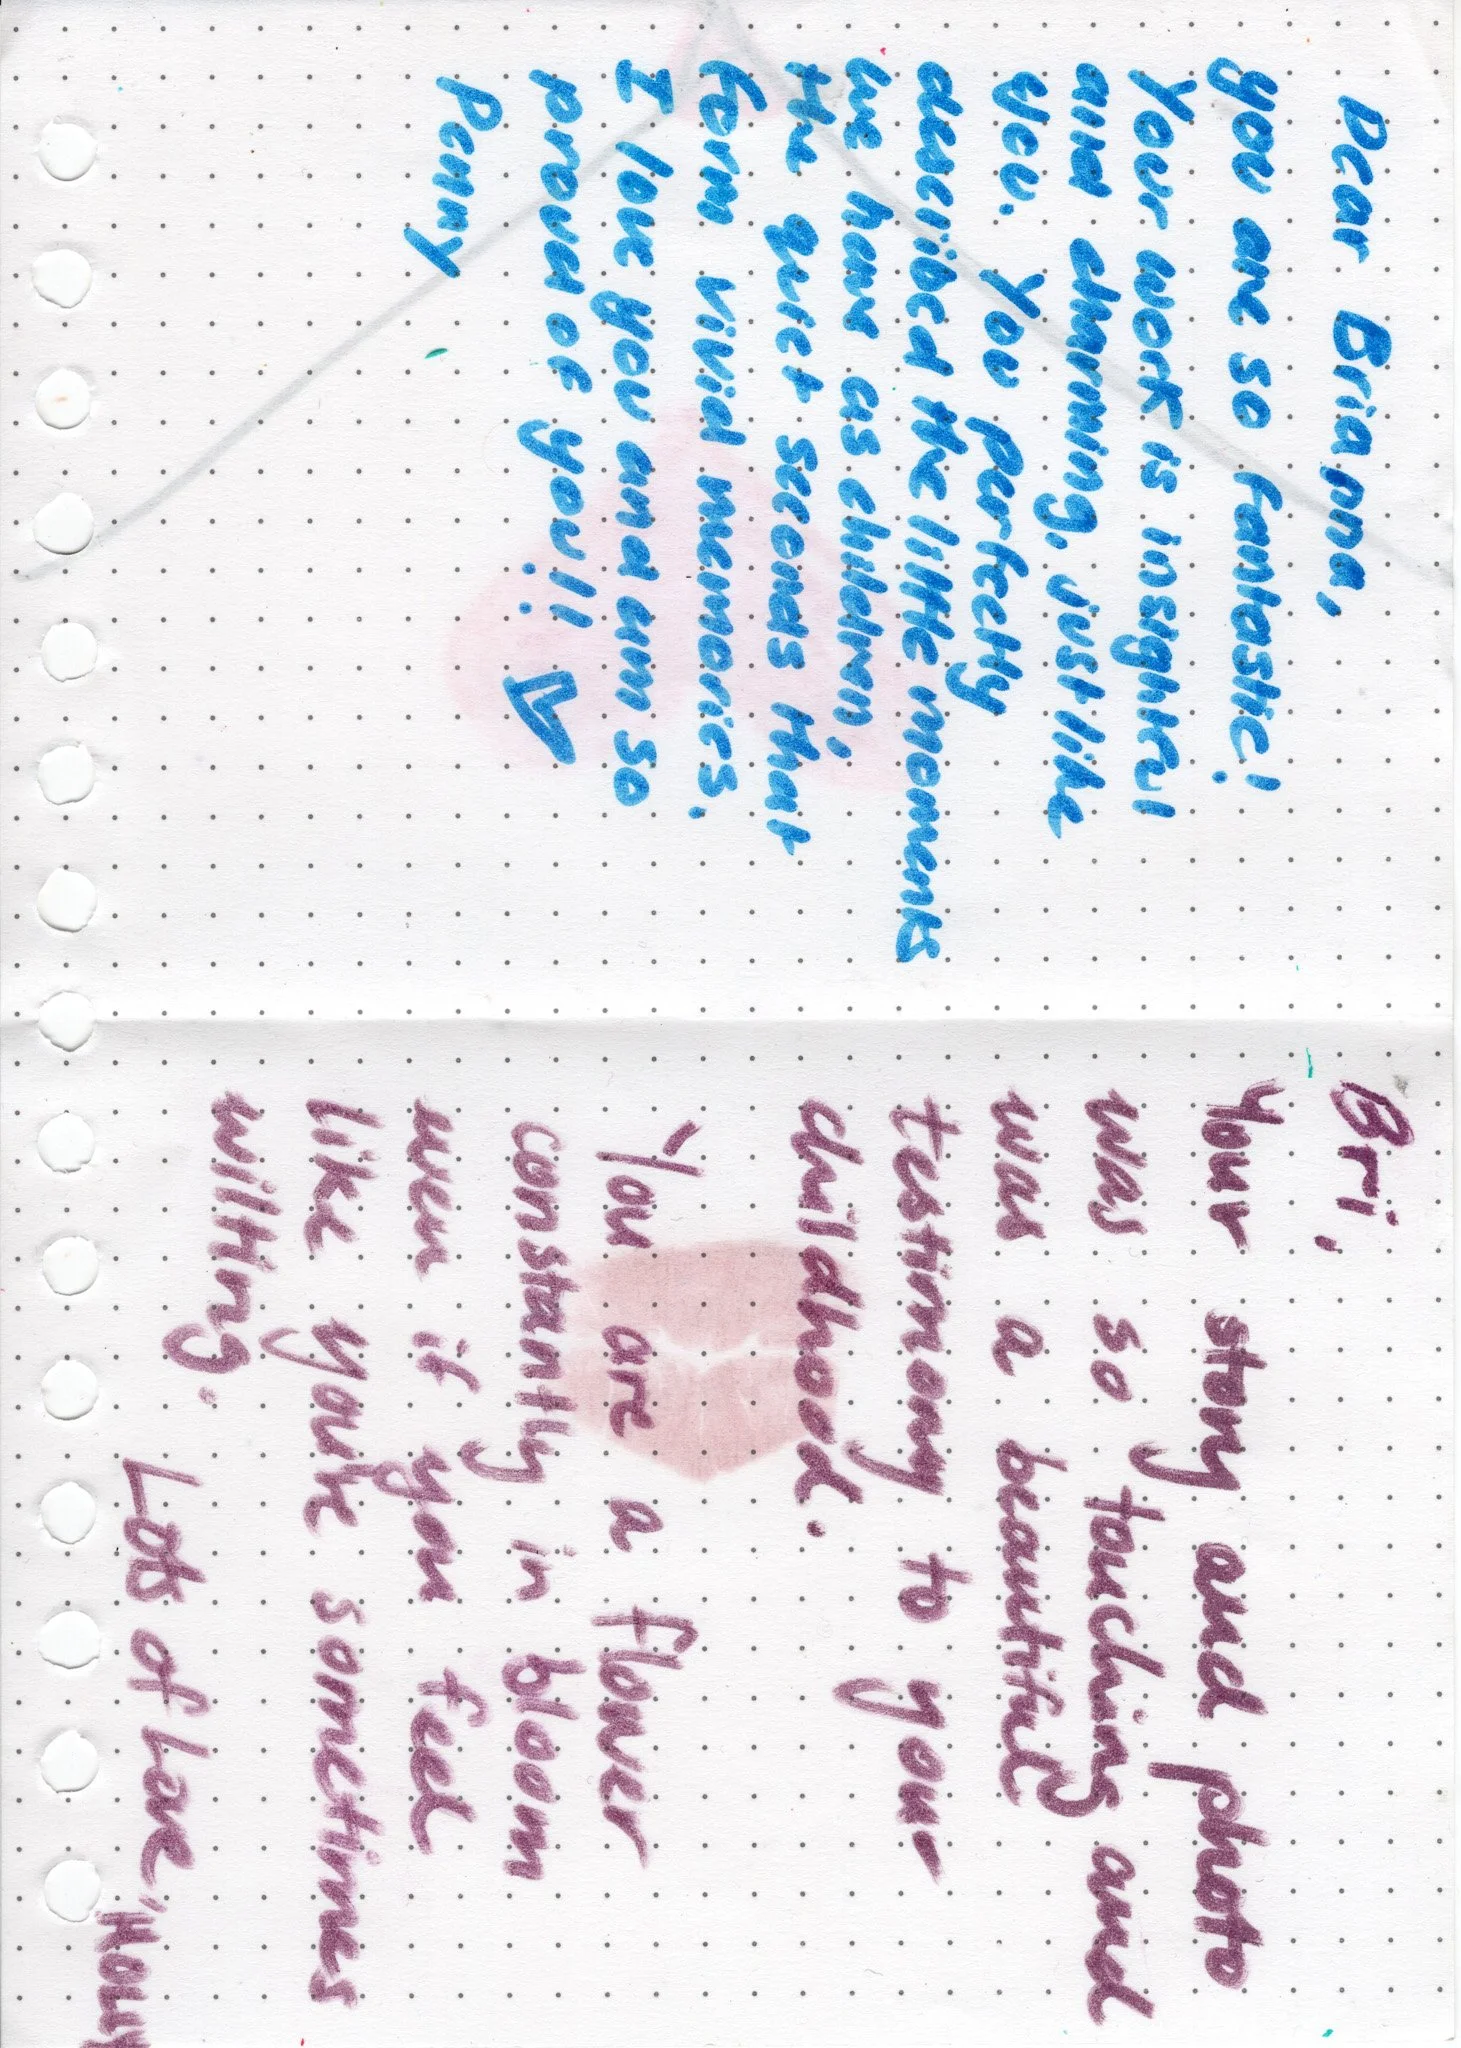 Dear Brianna,
you are so fantastic!
Your work is insightful
and charming, just like
you. You perfectly
described the little moments
we have as children,
the quiet seconds that
form vivid memories.
I love you and am so
proud of you!!
Penny
Bri,
Your story and photo
was so touching and
was a beautiful
testimony to your
childhood.
You are a flower
constantly in bloom
even if you feel
like you're sometimes
wilting.
Lots of Love,